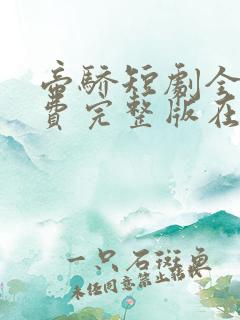 帝骄短剧全
费完整版在
一只石斑鱼
未经同意禁止转载